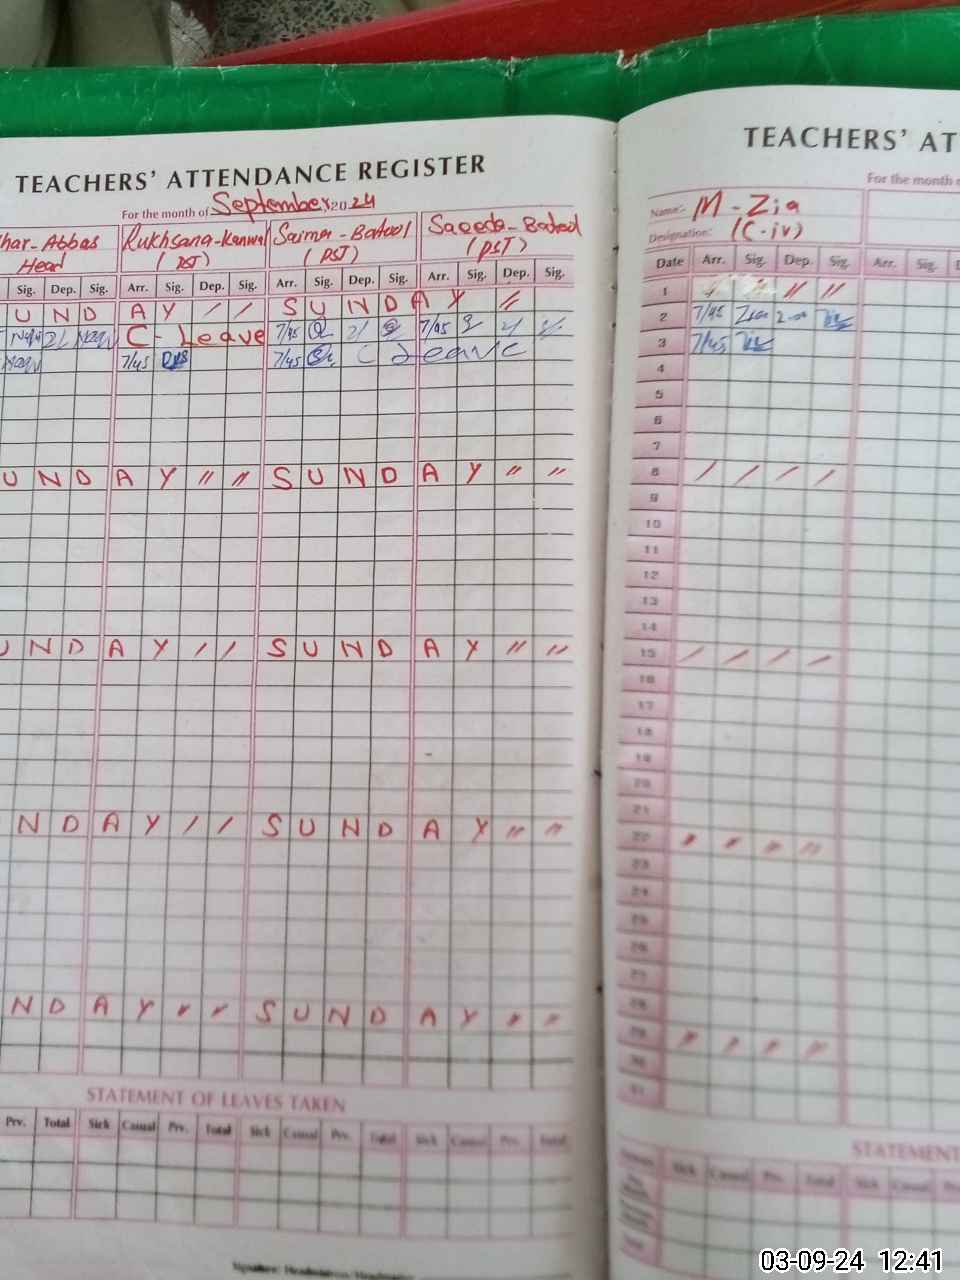 TEACHERS' ATTENDANCE REGISTER
For the month of September 2024
har-Abbas Rukhsana-Kanwal Saima-Batool Saeeda-Batool
Head (PST) (PST) (PST)
Sig. Dep. Sig. Arr. Sig. Dep. Sig. Arr. Sig. Dep. Sig. Arr. Sig. Dep. Sig.
U N D A Y / / S U N D A Y //
2/ C- Leave 7/45 2/ 7/45 2/
7/45 7/45 C Leave
U N D A Y // // S U N D A Y // //
U N D A Y / / S U N D A Y // //
N D A Y / / S U N D A Y // //
N D A Y // // S U N D A Y // //
STATEMENT OF LEAVES TAKEN
Prv. Total Sick Casual Prv. Total Sick Casual Prv. Total Sick Casual Prv. Total
TEACHERS' AT
For the month
Name:- M-Zia
Designation: (C-iv)
Date Arr. Sig. Dep. Sig. Arr. Sig.
1 // //
2 7/45 Zia 2-00
3 7/45
4
5
6
7
8 / / / /
9
10
11
12
13
14
15 / / / /
16
17
18
19
20
21
22 // // // //
23
24
25
26
27
28
29 // // // //
30
31
STATEMENT
Sick Casual Prv. Total Sick Casual
03-09-24 12:41